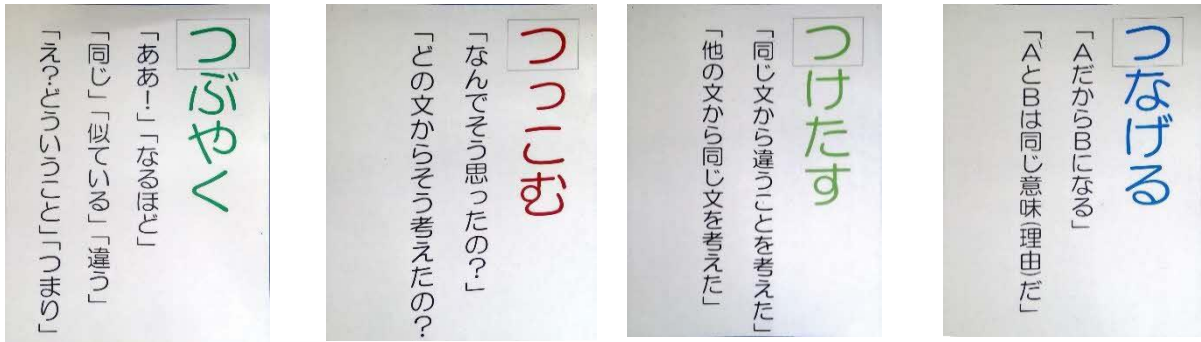 つぶやく
「ああ！」「なるほど」
「同じ」「似ている」「違う」
「え？どういうこと」「つまり」
つっこむ
「なんでそう思ったの？」
「どの文からそう考えたの？
つけたす
「同じ文から違うことを考えた」
「他の文から同じ文を考えた」
つなげる
「AだからBになる」
「AとBは同じ意味(理由)だ」